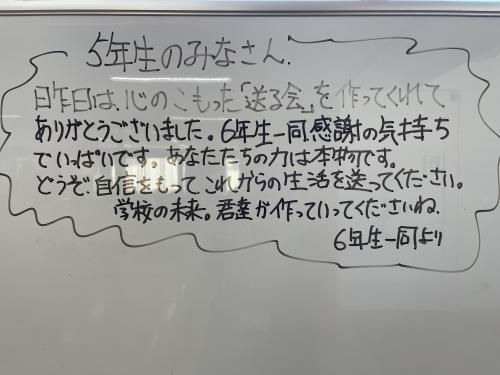 5年生のみなさん.
日昨日は、心のこもった「送る会」を作ってくれて
ありがとうございました。6年生一同、感謝の気持ち
でいっぱいです。あなたたちの力は本物です。
どうぞ、自信をもって、これからの生活を送ってください。
学校の未来。君達が作っていってくださいね.
6年生一同より